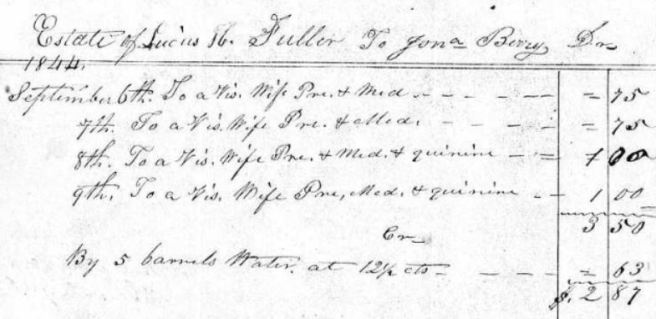 Estate of Lucius H. Fuller To Jona Berry Dr
1844.
September 6th. To a Vis. Wife Pre. & Med - - - - - = 75
7th. To a Vis. Wife Pre. & Med. - - - - = 75
8th. To a Vis. Wife Pre. & Med. & quinine - = 1 00
9th. To a Vis. Wife Pre, Med. & quinine - - 1 00
3 50
Cr
By 5 barrels Water. at 12½ cts - - - - = 63
$. 2 87